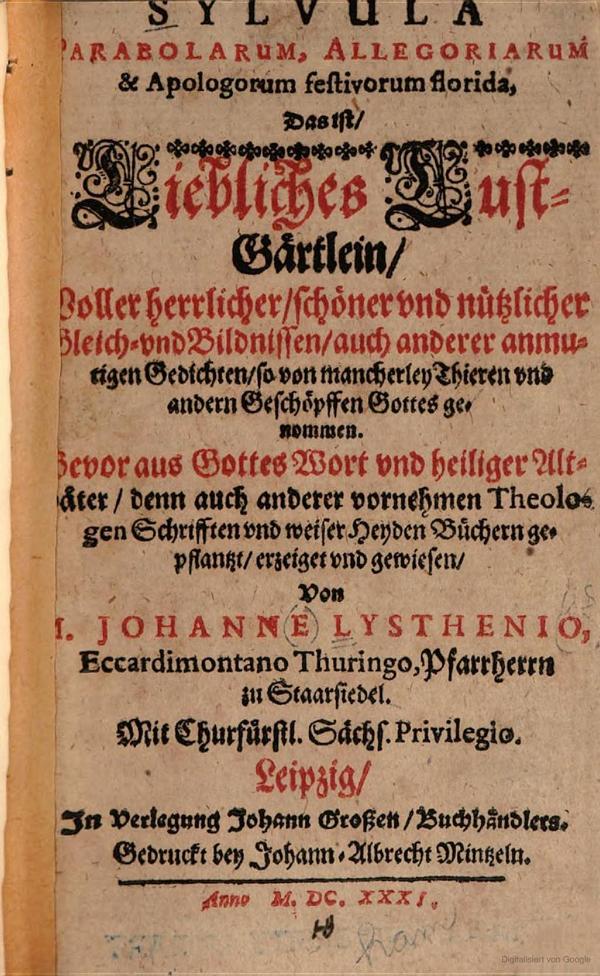 SYLVULA
PARABOLARUM, ALLEGORIARUM
& Apologorum festivorum florida,
Das ist/
Liebliches Lust-
Gärtlein/
Voller herrlicher/schöner vnd nützlicher
Gleich-vnd Bildnissen/auch anderer anmu-
tigen Gedichten/so von mancherley Thieren vnd
andern Geschöpffen Gottes ge-
nommen.
Bevor aus Gottes Wort vnd heiliger Alt-
väter / denn auch anderer vornehmen Theolo-
gen Schrifften vnd weiser Heyden Büchern ge-
pflantzt/ erzeiget vnd gewiesen/
Von
M. JOHANNE LYSTHENIO,
Eccardimontano Thuringo, Pfarrherrn
zu Staarsiedel.
Mit Churfürstl. Sächs. Privilegio.
Leipzig/
In Verlegung Johann Großen/Buchhändlers.
Gedruckt bey Johann-Albrecht Mintzeln.
Anno M. DC. XXXI.
Digitalisiert von Google